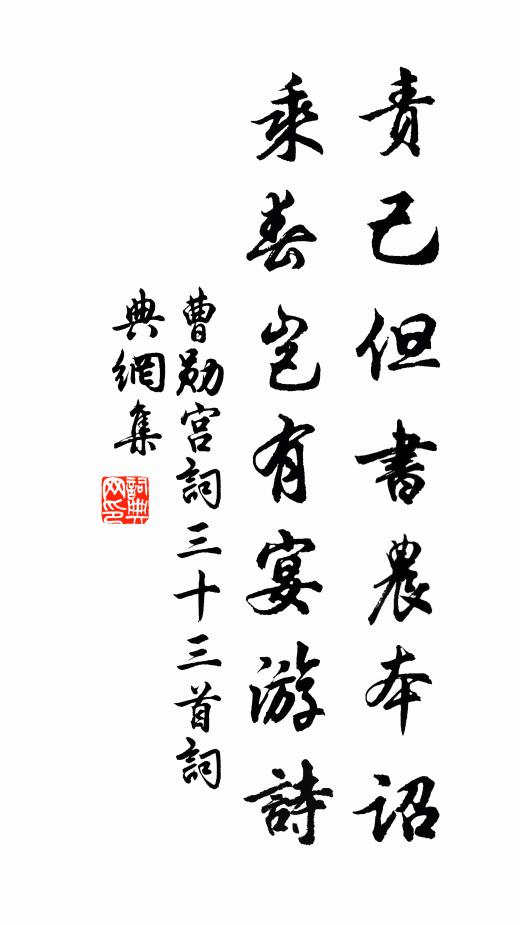 責己但書農本詔
乘春豈有宴游詩
曹勛宮詞三十三首詞
典網集
詞典
网印